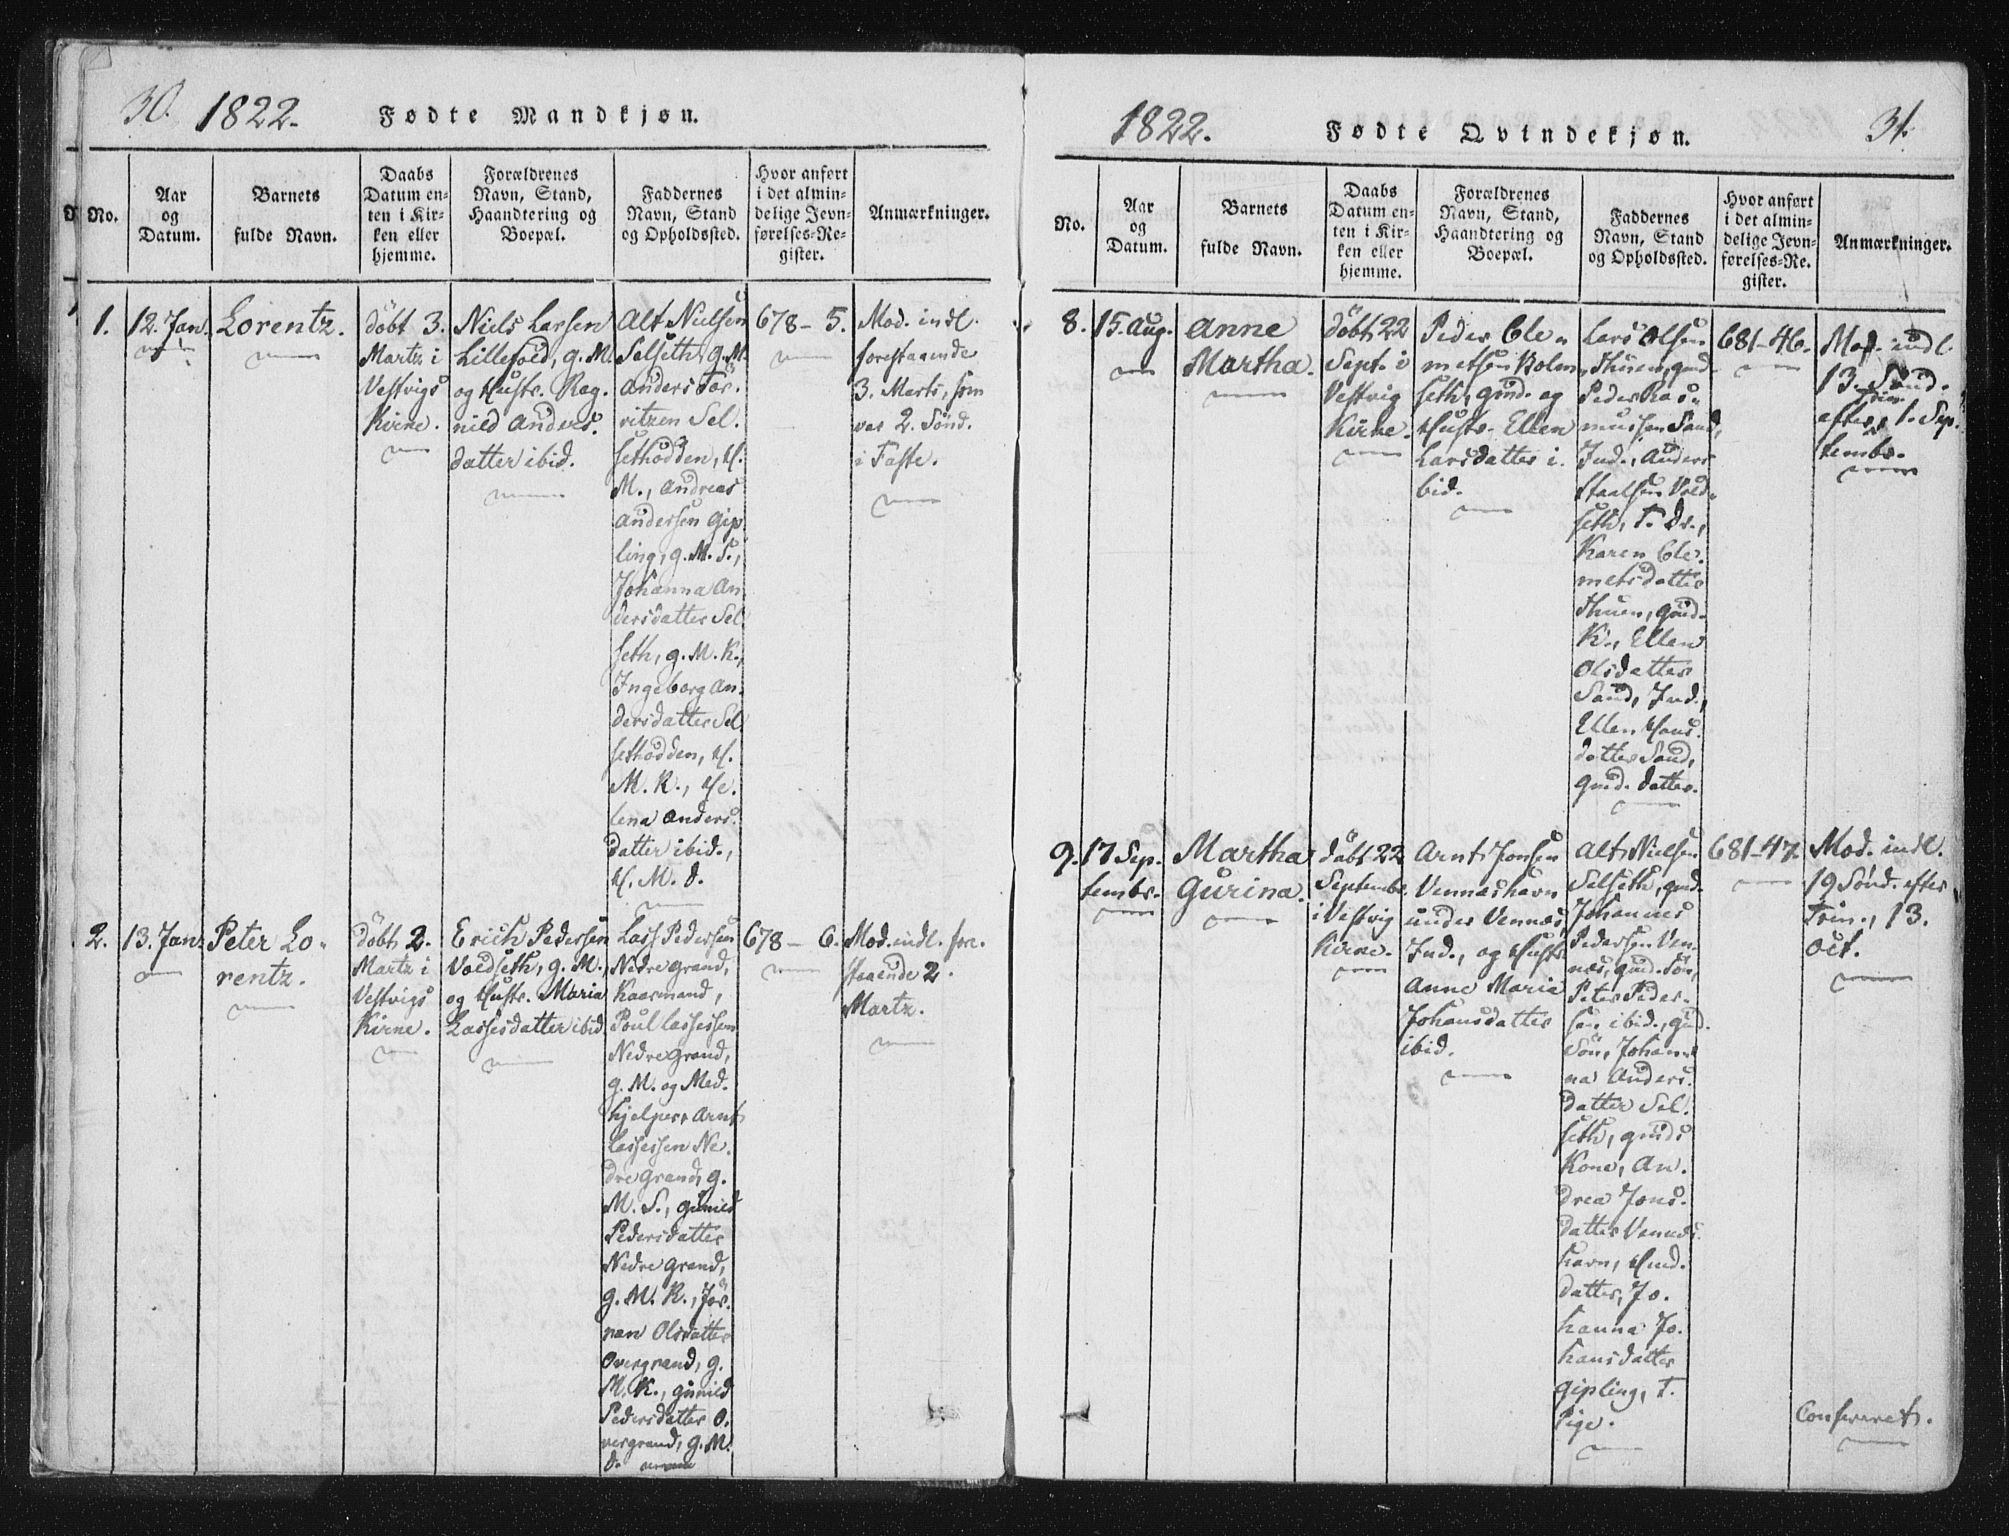 30.
1822.
Fødte Mandkjøn.
No.
Aar
og
Datum.
Barnets
fulde Navn.
Daabs
Datum en-
ten i Kir-
ken eller
hjemme.
Forældrenes
Navn, Stand,
Haandtering og
Boepæl.
Faddernes
Navn, Stand
og Opholdssted.
Hvor anført
i det almin-
delige Jevn-
førelses-Re-
gister.
Anmærkninger.
1.
12. Jan.
Lorentz.
döbt 3.
Martz i
Vestvigs
Kirke.
Niels Larsen
Lillefoed, g. M.
og Hustr. Rag-
nild Anders-
datter ibid.
Alt Nielsen
Selseth, g. M.
Anders For-
vitzen Sel-
sethodden, H.
M., Andreas
Andersen Gip
ling, g. M. S.,
Johanna An
dersdatter Sel
seth, g. M. K.,
Ingeborg An-
dersdatter Sel
sethodden, H.
M. K., He-
lena Anders-
datter ibid.,
H. M. d.
678 - 5.
Mod. indl.
forestaaende
3. Marts, som
var 2. Sönd.
i Faste.
2.
13. Jan.
Peter Lo-
rentz.
döbt 2.
Martz i
Vestvigs
Kirke.
Erich Pedersen
Voldseth, g. M.,
og Hustr. Maria
Lassesdatter ibid
Lass Pedersen
Nedre Grand,
Kaarmand,
Poul Lassessen
Nedre Grand,
g. M. og Med-
hjelper, Arnt
Lassessen Ne-
dre Grand, g.
M. S., Gunild
Pedersdatter
Nedre Grand,
g. M. K., Jör-
nan Olsdatter
Overgrand, g.
M. K., Gunild
Pedersdatter O-
vergrand, g. M.
d.
678 - 6.
Mod. indl. fre-
staaende 2.
Martz.
1822.
Fødte Qvindekjøn.
31.
No.
Aar
og
Datum.
Barnets
fulde Navn.
Daabs
Datum en-
ten i Kir-
ken eller
hjemme.
Forældrenes
Navn, Stand,
Haandtering og
Boepæl.
Faddernes
Navn, Stand
og Opholdssted.
Hvor anført
i det almin-
delige Jevn-
førelses-Re-
gister.
Anmærkninger.
8.
15. Aug.
Anne
Martha.
döbt 22
Sept. i
Vestvig
Kirke.
Peder Cle-
metsen Holm-
seth, gmd. og
Hustr. Ellen
Larsdatter i-
bid.
Lars Olsen
Thuen, gmd.
Peder Ras-
mussen Sand,
Ind., Anders
Staalsen Vold-
seth, T. Dr.,
Karen Cle-
metsdatter
Thuen, gmd.
K., Ellen
Olsdatter
Sand, Ind.,
Ellen Hans-
datter Sand,
gmd. datter.
681-46.
Mod. indl.
13. Sönd.
efter Trin. 1. Sep-
tembr.
9.
17 Sep-
tembr.
Martha
Gurina.
döbt 22
Septembr.
i Vestvig
Kirke.
Arnt Jonsen
Vennashavn
under Vennæs,
Ind., og Hustr
Anne Maria
Johansdatter
ibid.
Alt Nielsen
Selseth, gmd.
Johannes
Pedersen Ven-
næs, gmd. Sön,
Peter Peder-
sen ibid., gmd.
Sön, Johan-
na Anders-
datter Sel-
seth, gmds
Kone, An-
drea Jons-
datter Vennæs-
havn, Hmd.
datter, Jo-
hanna Jo-
hansdatter
Gipling, T.
Pige.
681-47.
Mod. indl.
19 Sönd. efter
Trin., 13.
Oct.
Confereret.